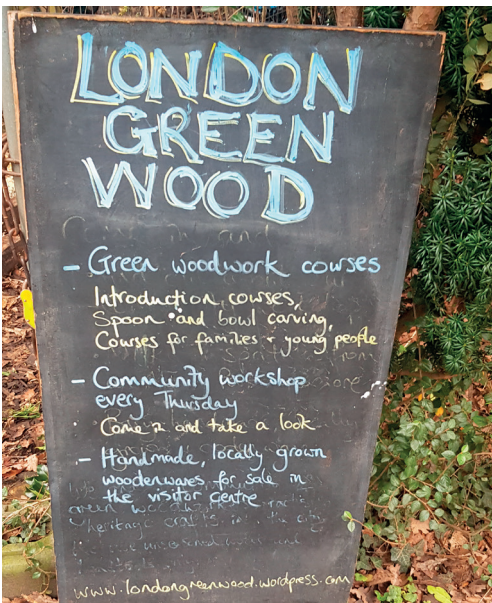 LONDON
GREEN
WOOD
- Green woodwork courses
Introduction courses,
Spoon and bowl carving,
Courses for families + young people
- Community workshop
every Thursday
Come in and take a look
- Handmade, locally grown
woodenwares for sale in
the visitor centre
heritage crafts in the city
www.londongreenwood.wordpress.com